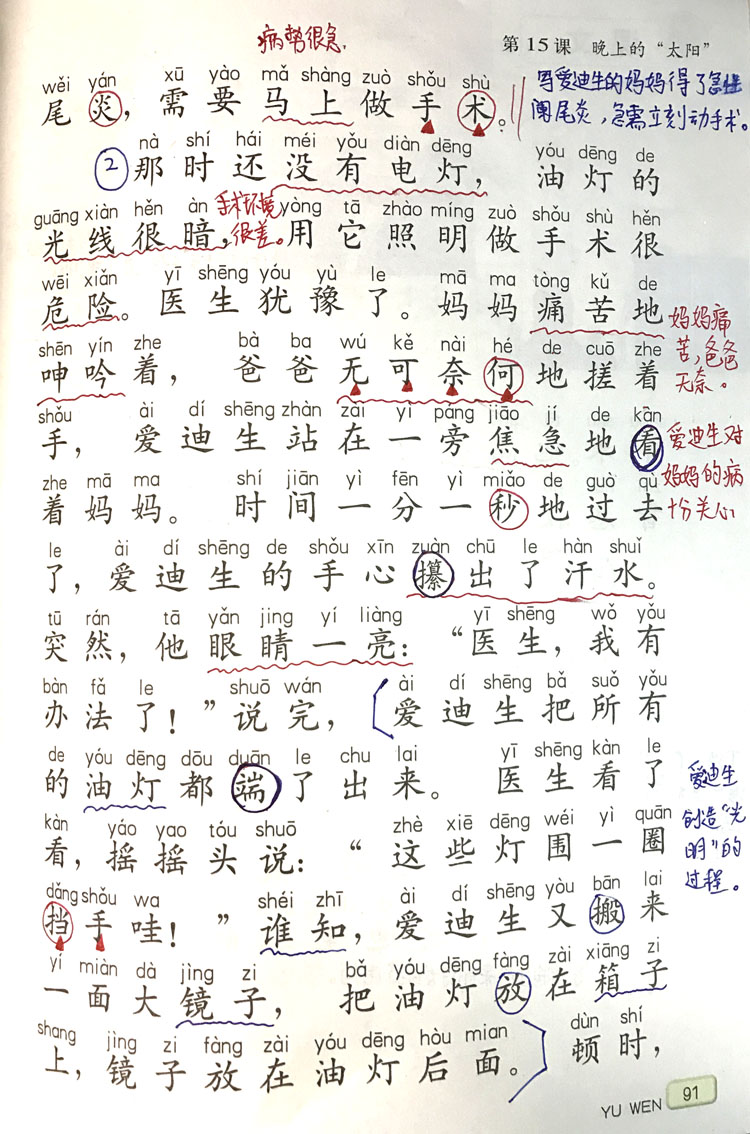 病势很急.
第15课 晚上的“太阳”
wěi yán xū yào mǎ shàng zuò shǒu shù
尾炎，需要马上做手术。
写爱迪生的妈妈得了急性
阑尾炎，急需立刻动手术。
nà shí hái méi yǒu diàn dēng yóu dēng de
②那时还没有电灯，油灯的
guāng xiàn hěn àn yòng tā zhào míng zuò shǒu shù hěn
光线很暗，用它照明做手术很
手术环境
很差。
wēi xiǎn yī shēng yóu yù le mā ma tòng kǔ de
危险。医生犹豫了。妈妈痛苦地
shēn yín zhe bà ba wú kě nài hé de cuō zhe
呻吟着，爸爸无可奈何地搓着
妈妈痛
苦，爸爸
无奈。
shǒu ài dí shēng zhàn zài yì páng jiāo jí de kàn
手，爱迪生站在一旁焦急地看
zhe mā ma shí jiān yì fēn yì miǎo de guò qù
着妈妈。时间一分一秒地过去
爱迪生对
妈妈的病
十分关心
le ài dí shēng de shǒu xīn zuàn chū le hàn shuǐ
了，爱迪生的手心攥出了汗水。
tū rán tā yǎn jing yí liàng yī shēng wǒ yǒu
突然，他眼睛一亮：“医生，我有
bàn fǎ le shuō wán ài dí shēng bǎ suǒ yǒu
办法了！”说完，爱迪生把所有
de yóu dēng dōu duān le chu lai yī shēng kàn le
的油灯都端了出来。医生看了
kàn yáo yao tóu shuō zhè xiē dēng wéi yì quān
看，摇摇头说：“这些灯围一圈
爱迪生
创造“光
明”的
过程。
dǎng shǒu wa shéi zhī ài dí shēng yòu bān lai
挡手哇！”谁知，爱迪生又搬来
yí miàn dà jìng zi bǎ yóu dēng fàng zài xiāng zi
一面大镜子，把油灯放在箱子
shang jìng zi fàng zài yóu dēng hòu mian dùn shí
上，镜子放在油灯后面。顿时，
YU WEN 91